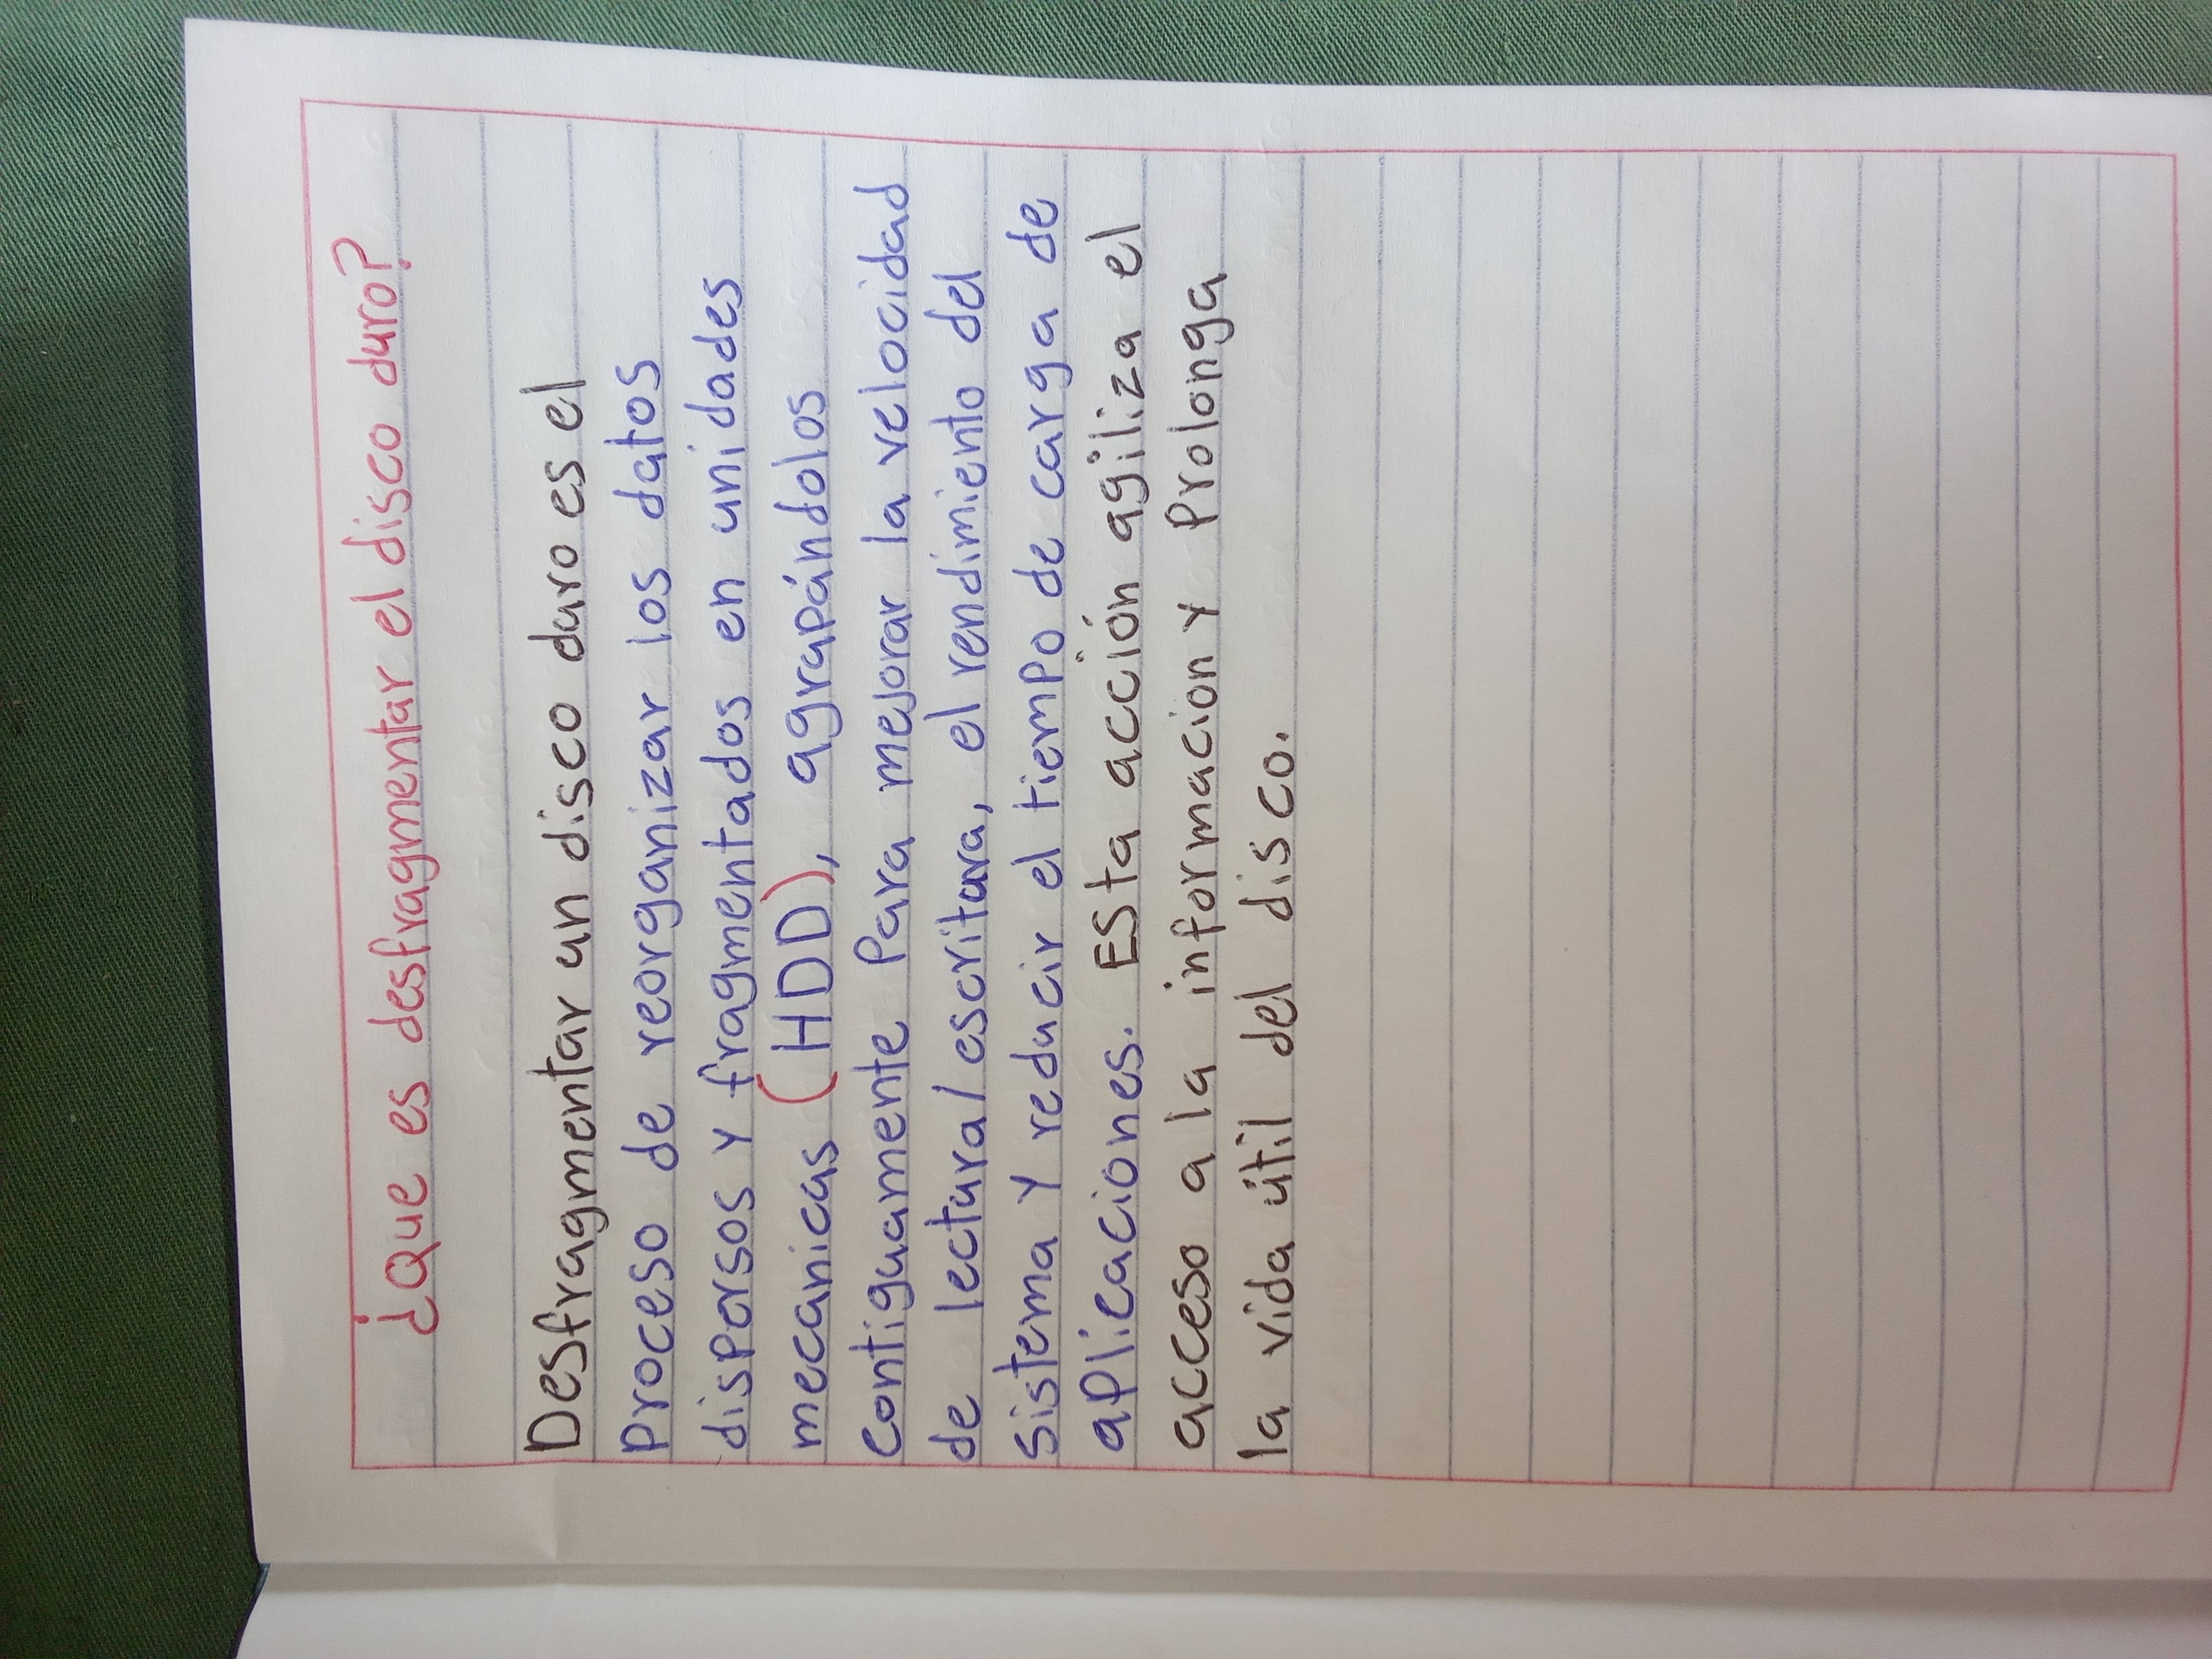 ¿Que es desfragmentar el disco duro?
Desfragmentar un disco duro es el
Proceso de reorganizar los datos
dispersos y fragmentados en unidades
mecanicas (HDD), agrupándolos
contiguamente Para mejorar la velocidad
de lectura/escritura, el rendimiento del
sistema y reducir el tiempo de carga de
aplicaciones. Esta acción agiliza el
acceso a la informacion y Prolonga
la vida útil del disco.